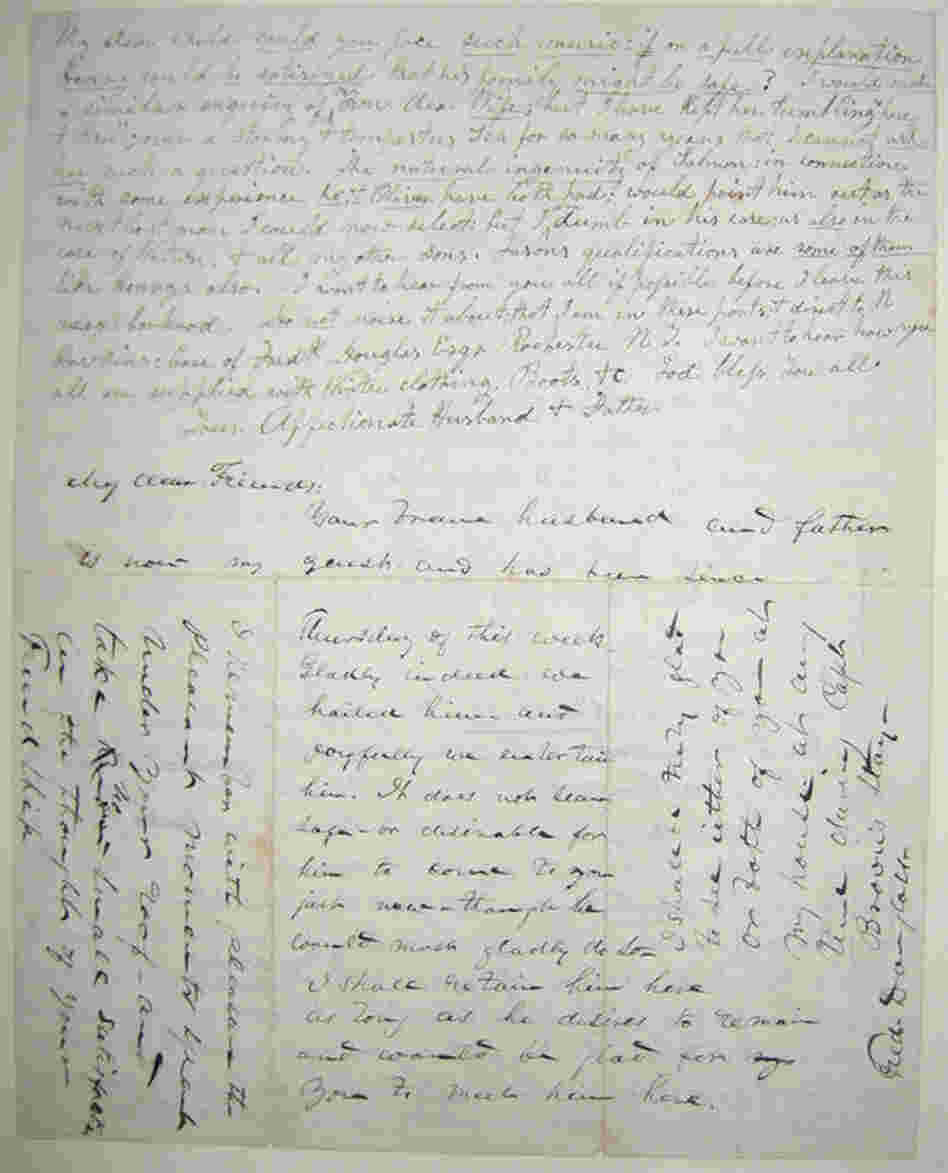 My dear child could you face such music: if on a full explanation
Henry could be satisfied that his family might be safe? I would make
a similar enquiry of my own dear Wife; but I have kept her tumbling "here
& there" over a stormy & tempestous Sea for so many years that I cannot ask
her such a question. The natural ingenuity of Salmon: in connection
with some experience he, & Oliver have both had; would point him out as the
next best man I could now select: but I, dumb in his case; as also in the
case of Watson, & all my other sons. Jasons qualifications are some of them
like Henrys also. I want to hear from you all if possible before I leave this
neighborhood. Do not noise it about that I am in these parts & direct to N
Hawkins: Care of Fredk Douglas Esqr Rochester N.Y. I want to hear how you
all are supplied with Winter clothing, Boots, &c God bless You all.
Your Affectionate Husband & Father
My dear Friends.
Your brave husband and father
is now my guest and has been since
Thursday of this week.
Gladly indeed we
hailed him and
joyfully we entertain
him. It does not seam
safe - or desirable for
him to come to you
just now - though he
would most gladly do so
I shall retain him here
as long as he desires to remain
and would be glad for
you to meet him here.
I shall be very glad
to see either of you
or both of you at
my house at any
time during Capt
Brown's Stay
Fred. Douglass
I remember with pleasure the
pleasant moments spent
under your roof - and
take no small satisfaction
in the thought of your
Friendship